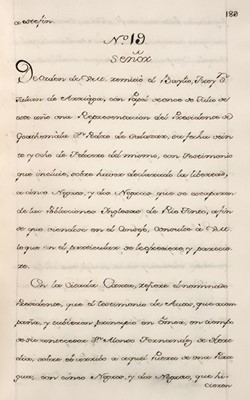 180
Nº. 19
Señor
De Orden de V.M. remitió el Baylio, Frey Dⁿ
Julian de Arriaga, con Papel de once de Julio de
este año una Representacion del Presidente de
Goathemala Dⁿ Pedro de Salazar, su fecha vein-
te y ocho de Febrero del mismo, con Testimonio
que incluia, sobre haver declarado la libertad,
a cinco Negros, y dos Negras que se escaparon
de las Poblaciones Inglesas de Rio Tinto, a fin
de que viendose en el Consejo, consulte à V.M.
lo que en el particular se le ofreciere, y parecie-
re.
En la citada Carta, refiere el nominado
Presidente, que el testimonio de Autos, que acom-
paña, y tubieron principio en Omoa, en tiempo
de su antecesor Dⁿ Alonso Fernandez de Here-
dia, sobre el arribo a aquel Puerto de una Pira-
gua, con cinco Negros, y dos Negras, que hi-
cieron